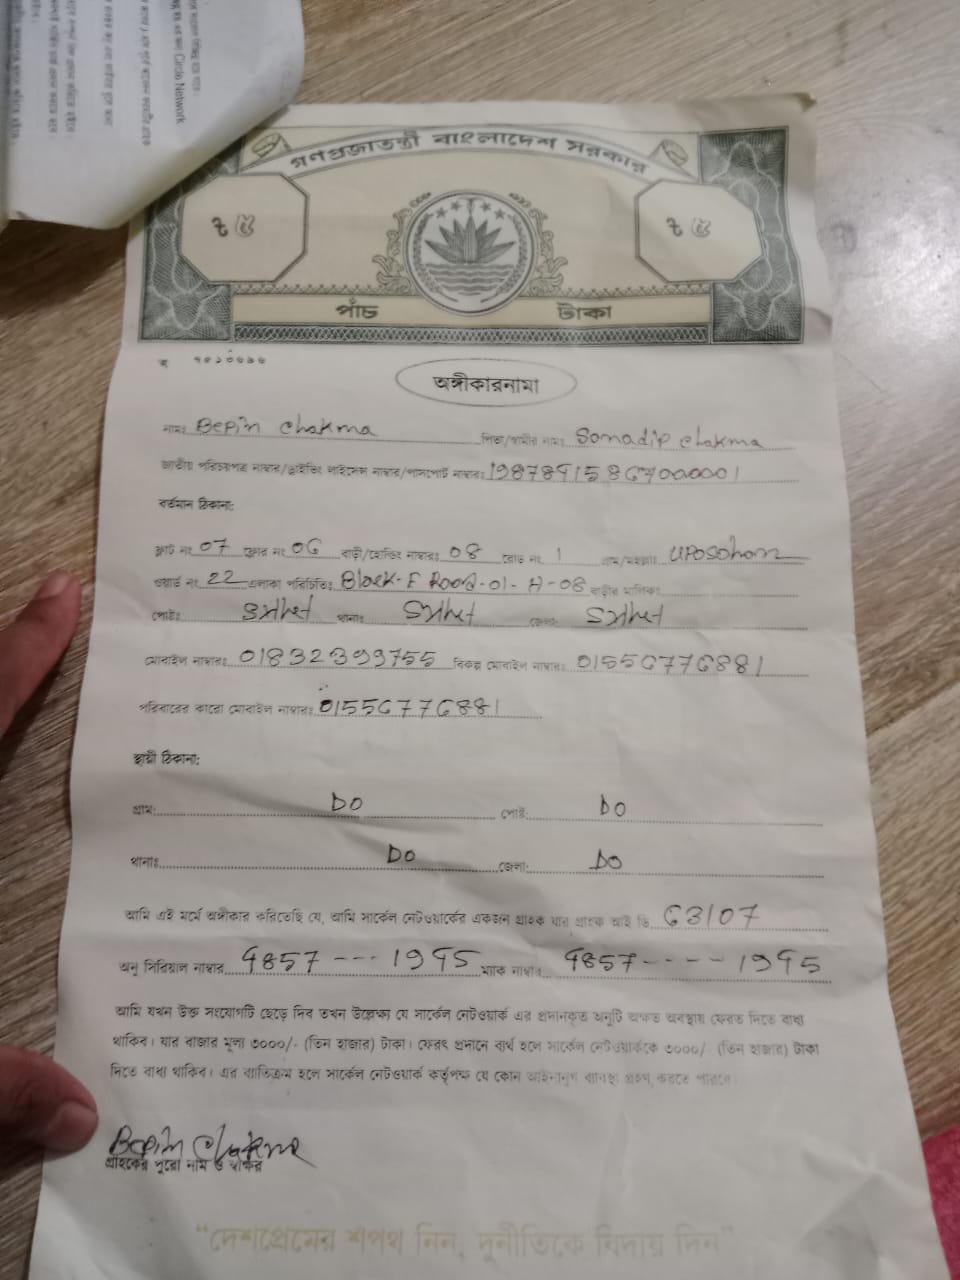 Circle Network
গণপ্রজাতন্ত্রী বাংলাদেশ সরকার
৳ ৫ ৳ ৫
পাঁচ টাকা
অঙ্গীকারনামা
নামঃ Bepin Chakma পিতা/স্বামীর নামঃ Somadip Chakma
জাতীয় পরিচয়পত্র নাম্বার/ড্রাইভিং লাইসেন্স নাম্বার/পাসপোর্ট নাম্বারঃ
বর্তমান ঠিকানা:
ফ্লাট নং 07 ফ্লোর নং 06 বাড়ী/হোল্ডিং নাম্বারঃ 08 রোড নং 1 গ্রাম/মহল্লাঃ Uposohor
ওয়ার্ড নং 22 এলাকা পরিচিতিঃ Block-F Road-01- H-08 বাড়ীর মালিকঃ
পোষ্টঃ Sylhet থানাঃ Sylhet জেলাঃ Sylhet
মোবাইল নাম্বারঃ 01832399755 বিকল্প মোবাইল নাম্বারঃ 01556776881
পরিবারের কারো মোবাইল নাম্বারঃ 01556776881
স্থায়ী ঠিকানা:
গ্রাম: DO পোষ্ট: DO
থানাঃ DO জেলা: DO
আমি এই মর্মে অঙ্গীকার করিতেছি যে, আমি সার্কেল নেটওয়ার্কের একজন গ্রাহক যার গ্রাহক আই ডি 63107
অনু সিরিয়াল নাম্বার 4857 --- 1945 ম্যাক নাম্বার 4857 ---- 1945
আমি যখন উক্ত সংযোগটি ছেড়ে দিব তখন উল্লেখ্য যে সার্কেল নেটওয়ার্ক এর প্রদানকৃত অনুটি অক্ষত অবস্থায় ফেরত দিতে বাধ্য
থাকিব। যার বাজার মূল্য ৩০০০/- (তিন হাজার) টাকা। ফেরৎ প্রদানে ব্যর্থ হলে সার্কেল নেটওয়ার্ককে ৩০০০/- (তিন হাজার) টাকা
দিতে বাধ্য থাকিব। এর ব্যতিক্রম হলে সার্কেল নেটওয়ার্ক কর্তৃপক্ষ যে কোন আইনানুগ ব্যবস্থা গ্রহণ করতে পারবে।
Bepin Chakma
গ্রাহকের পুরো নাম ও স্বাক্ষর
“দেশপ্রেমের শপথ নিন, দুর্নীতিকে বিদায় দিন”